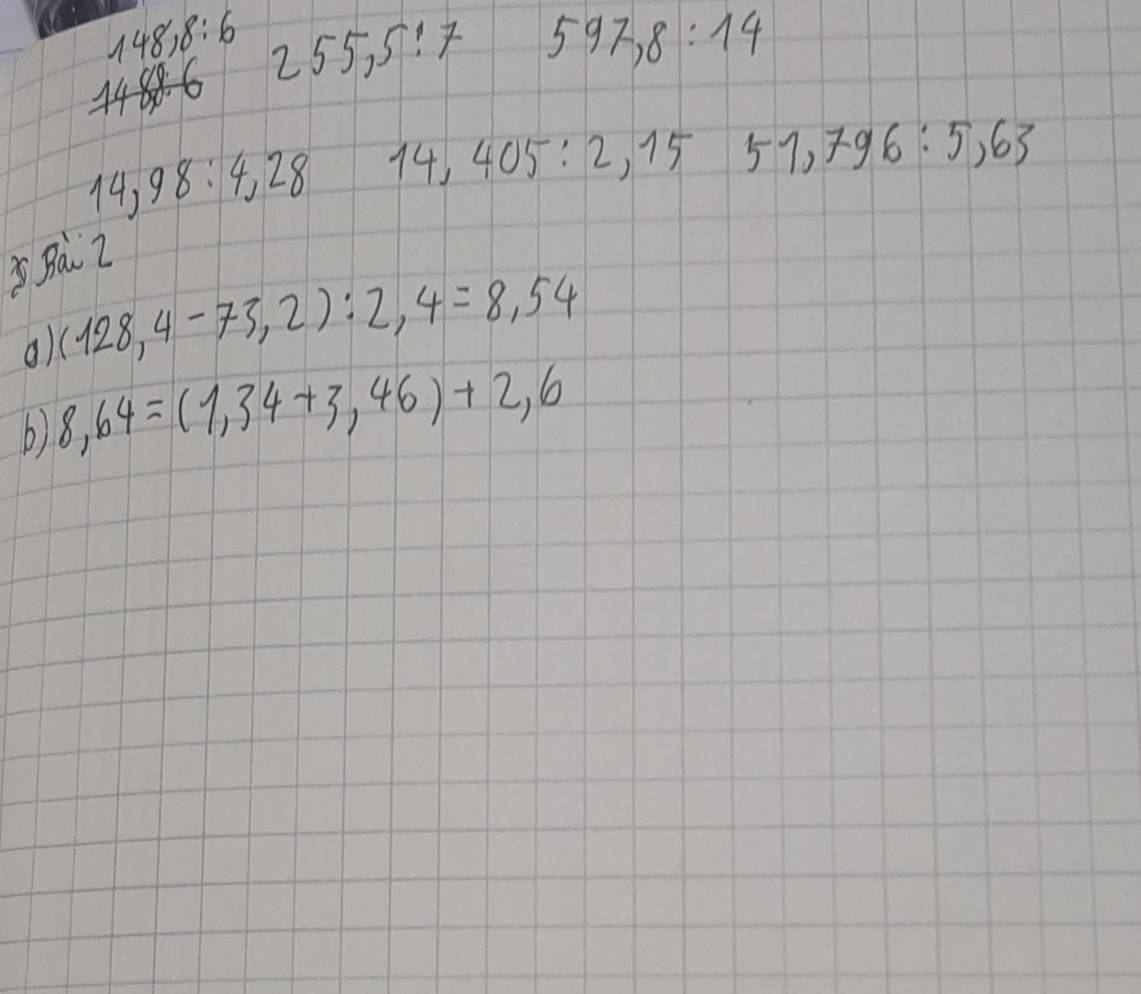 148,8:6 255,5:7 597,8:14
14,98:4,28 14,405:2,15 51,796:5,63
Bài 2
a)(128,4-73,2):2,4=8,54
b)8,64=(1,34+3,46)+2,6